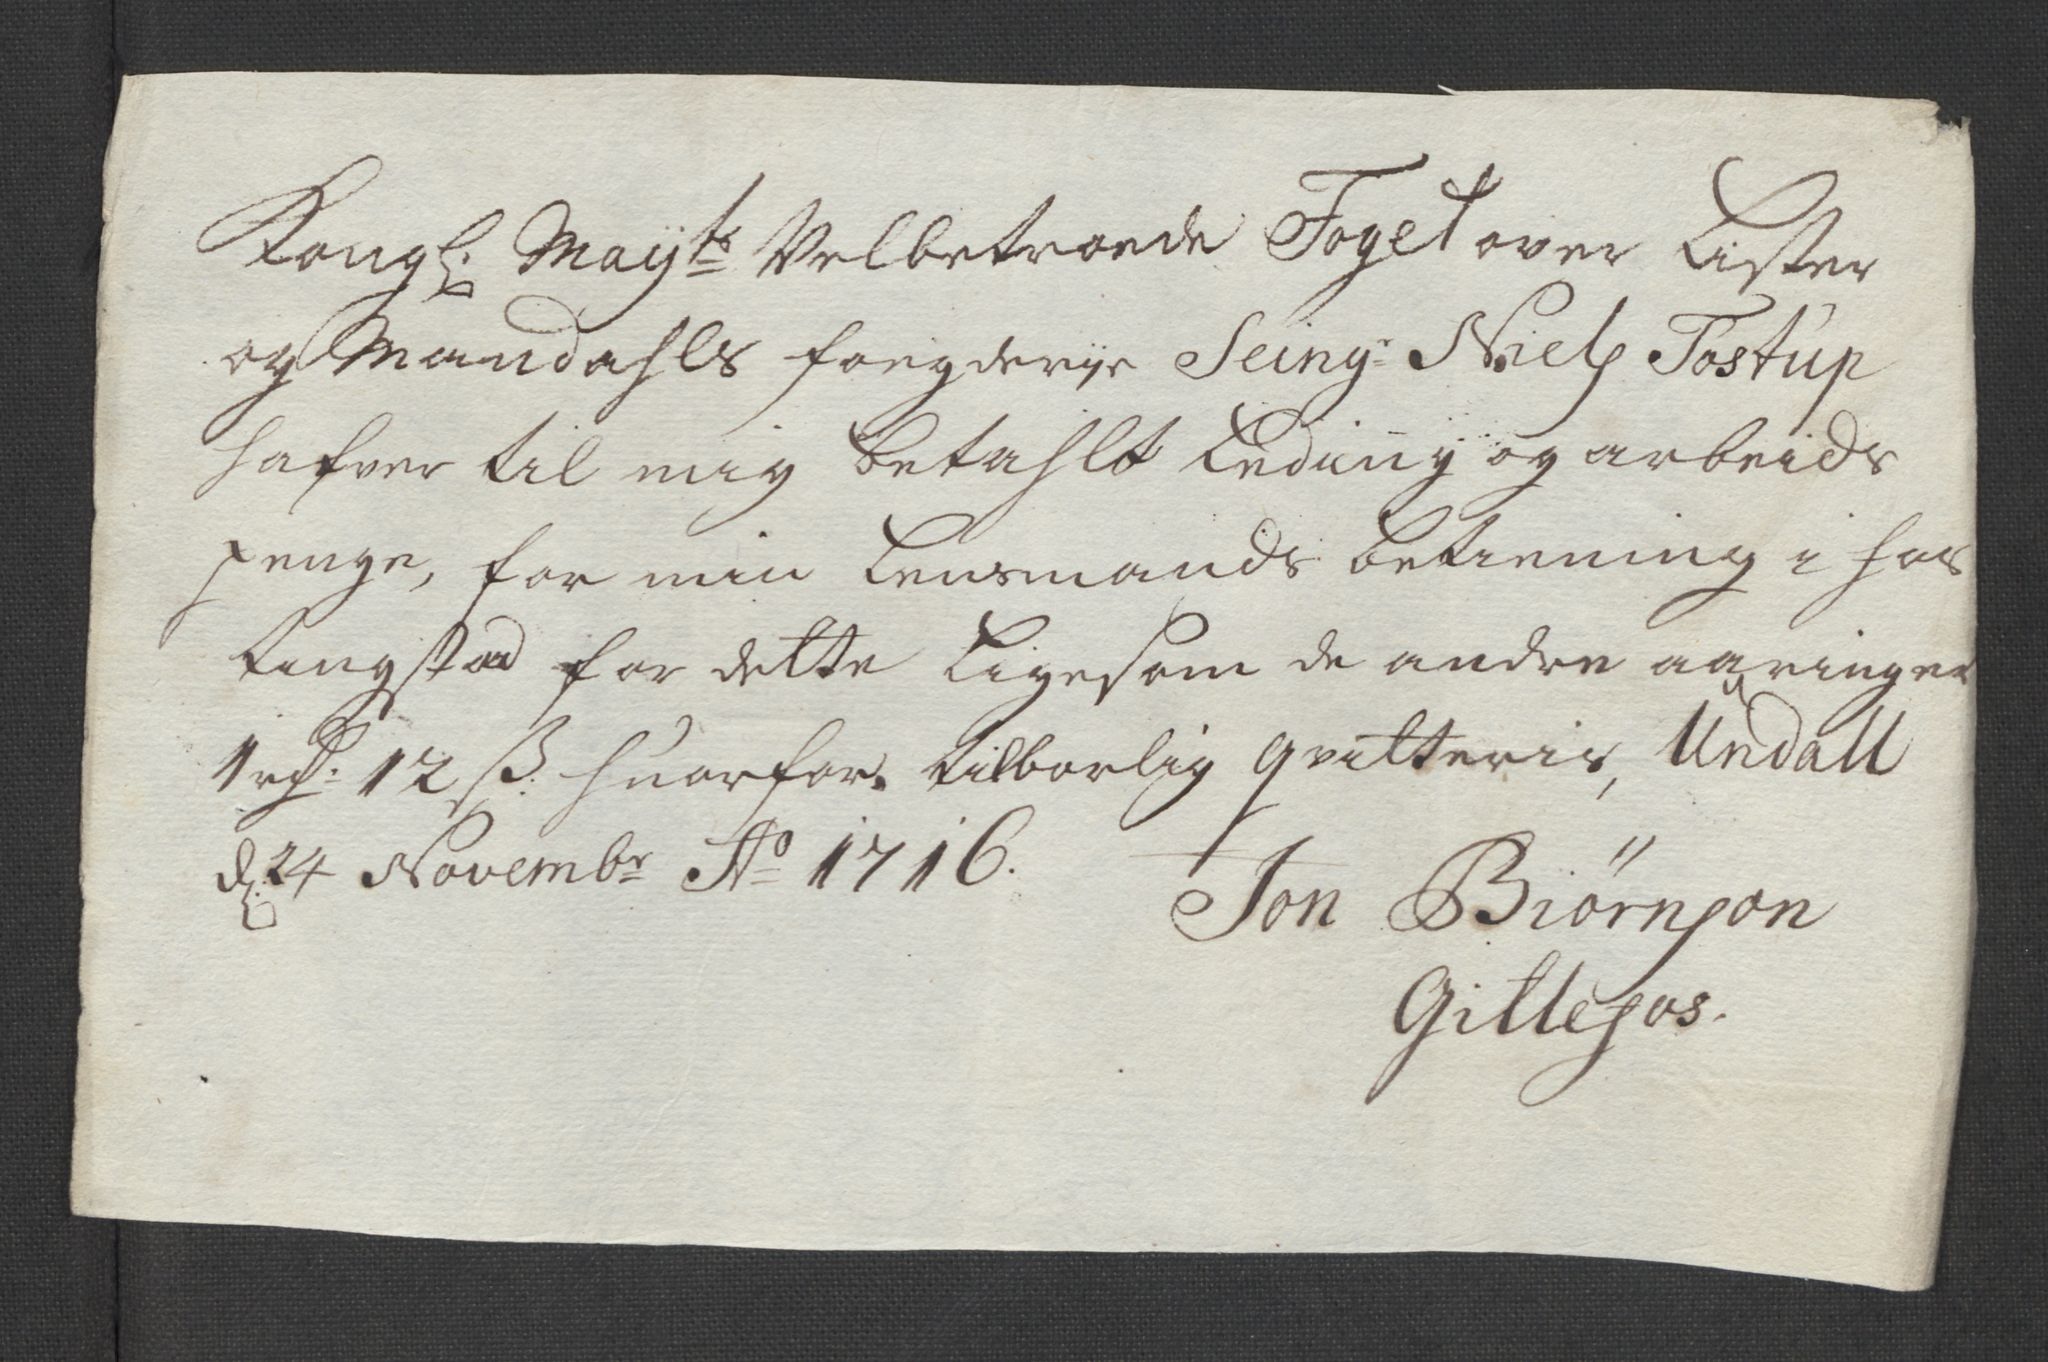 Kongl: Mayts Velbetroede Foget over Lister
og Mandahls foegderije Seingr Niels Tostup
hafver til mig betahlt Leding og arbeids
penge, for min Lensmands betiening i hos
tingstad for dette Ligesom de andre aaringer
1 rd: 12 ß huorfor tilborlig qvitteris, Undall
d: 24 Novembr Ao 1716.
Jon Biörnson
Gitlesos.